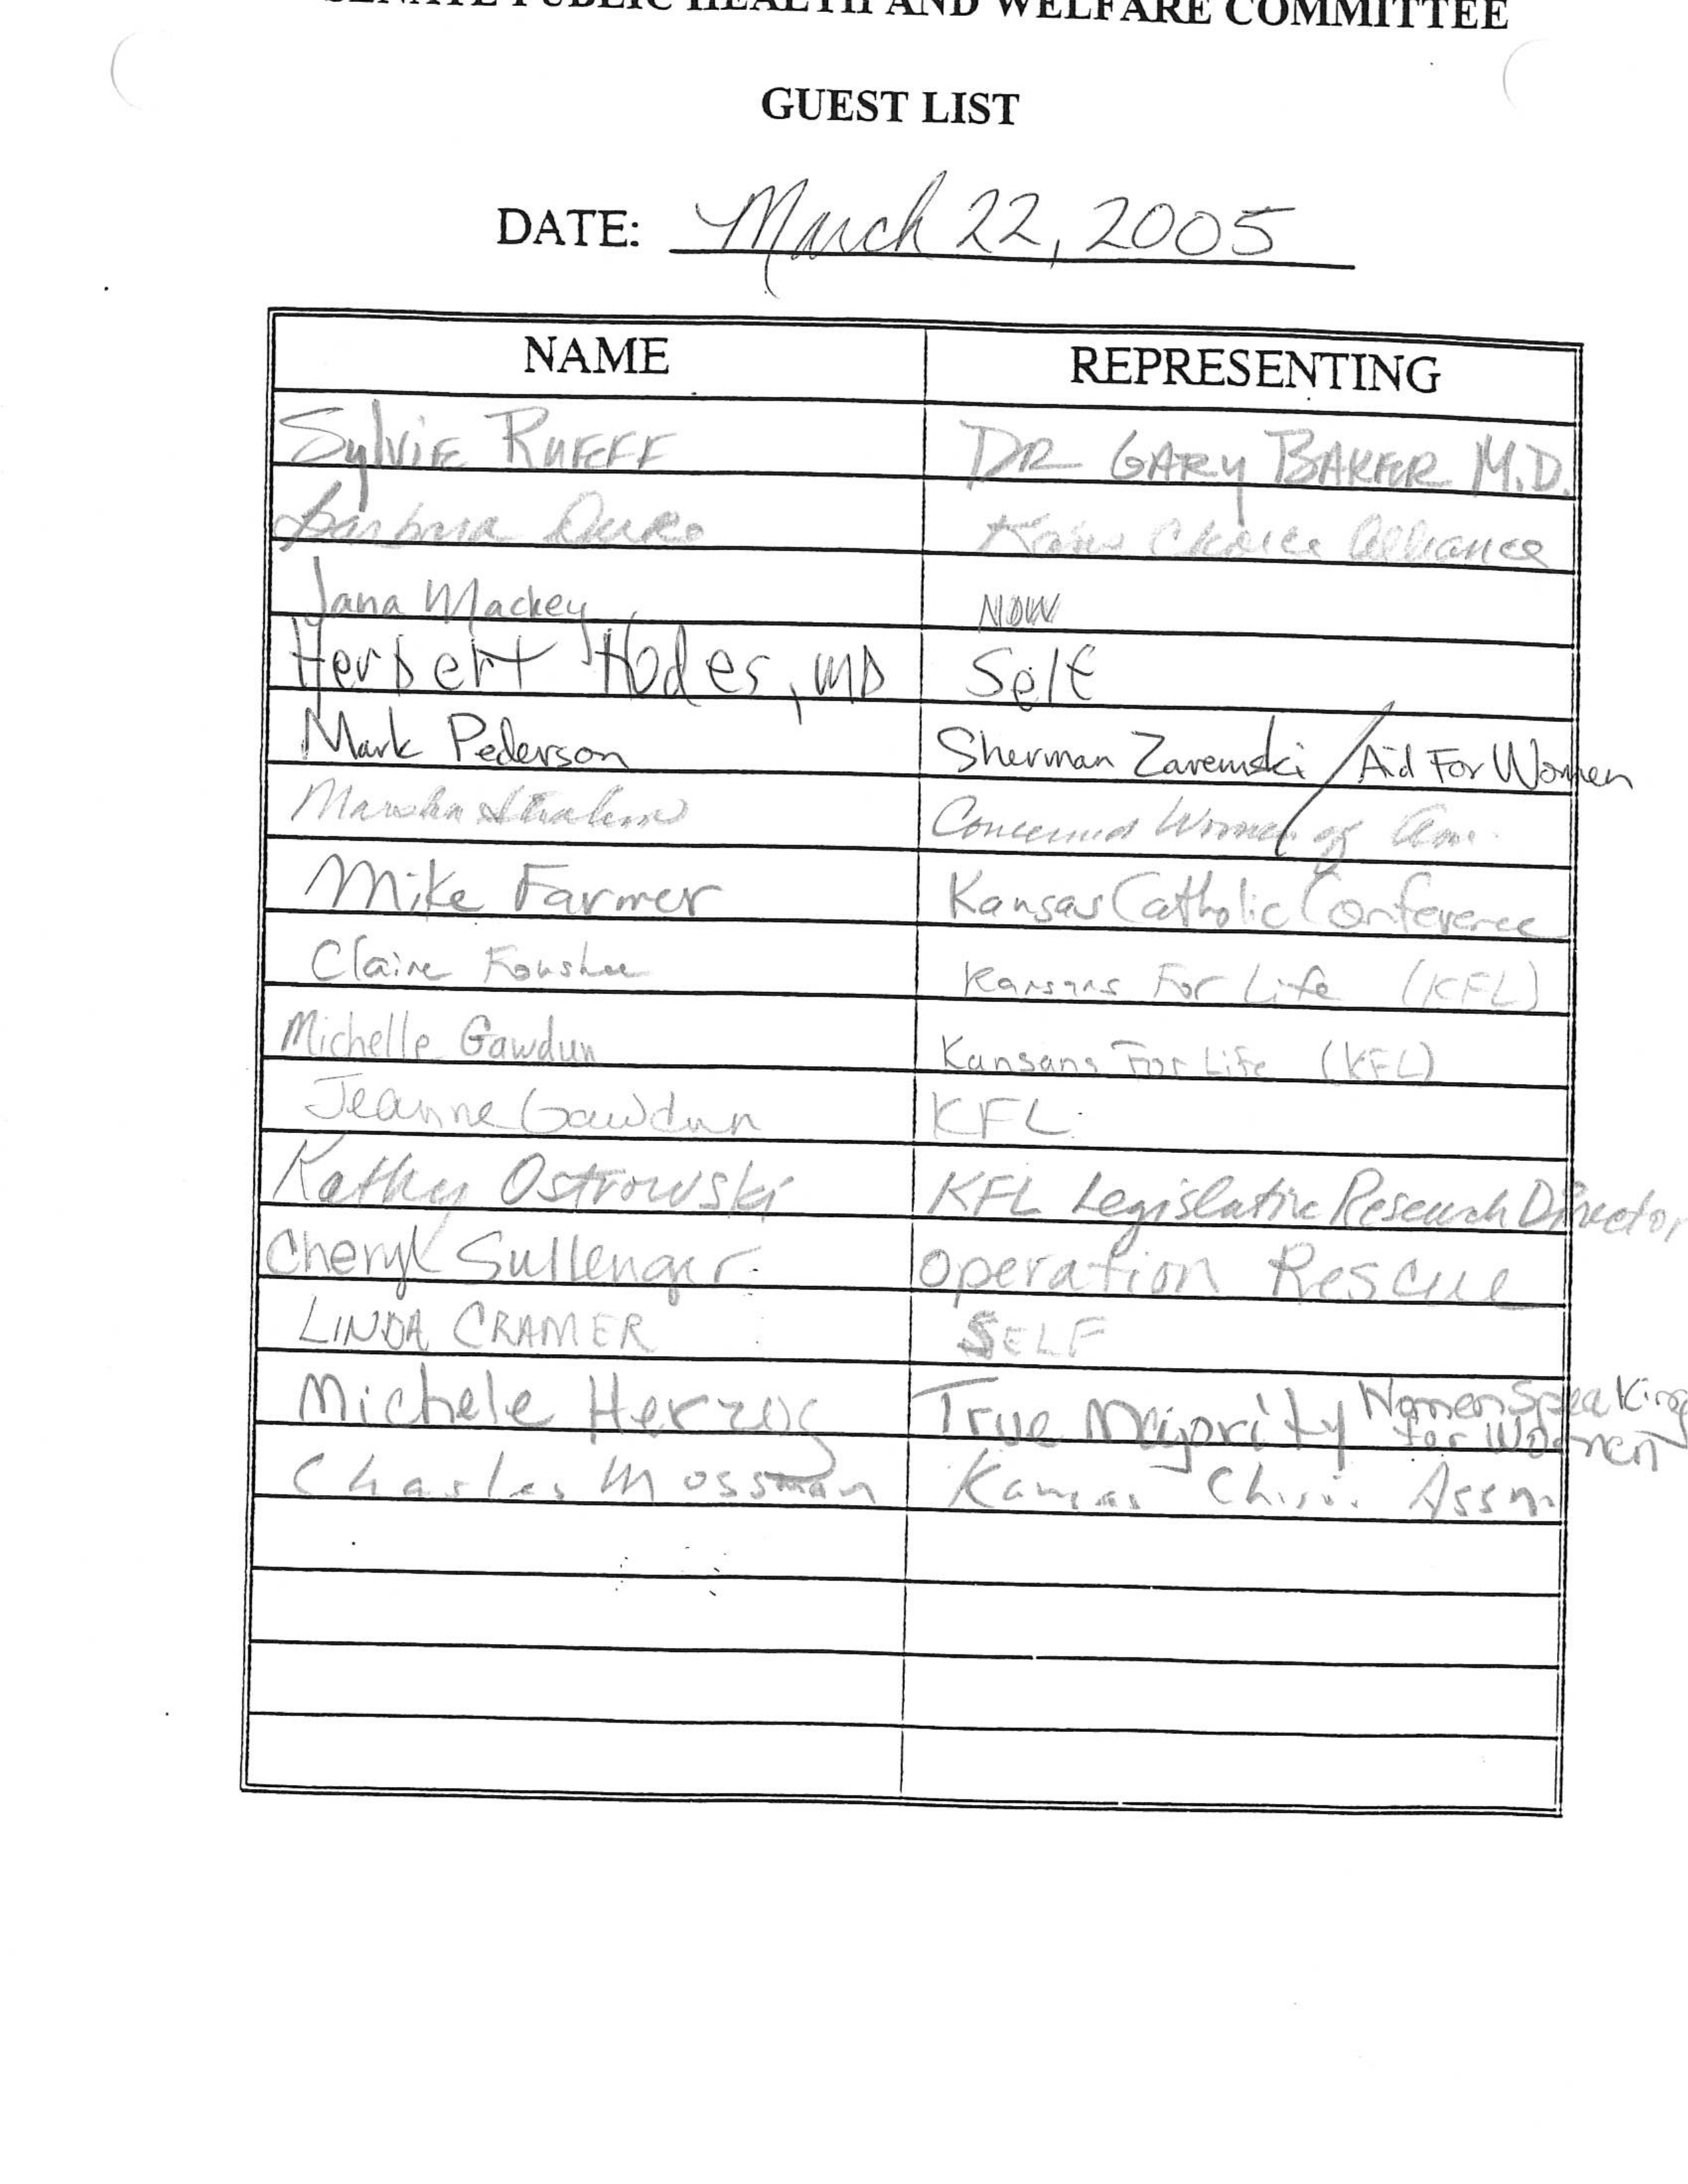 SENATE PUBLIC HEALTH AND WELFARE COMMITTEE
GUEST LIST
DATE: March 22, 2005
NAME REPRESENTING
Sylvie Rueff DR GARY BAKER M.D.
Barbara Duke Choice Alliance
Jana Mackey NOW
Herbert Hodes, MD Self
Mark Pederson Sherman Zaremski / Aid For Women
Marsha Strahm Concerned Women of Am.
Mike Farmer Kansas Catholic Conference
Claire Foushee Kansans For Life (KFL)
Michelle Gawdun Kansans For Life (KFL)
Jeanne Gawdun KFL
Kathy Ostrowski KFL Legislative Research Director
Cheryl Sullenger Operation Rescue
LINDA CRAMER SELF
Michele Herzog True Majority Women Speaking
for Women
Charles Mossman Kansas Assn.